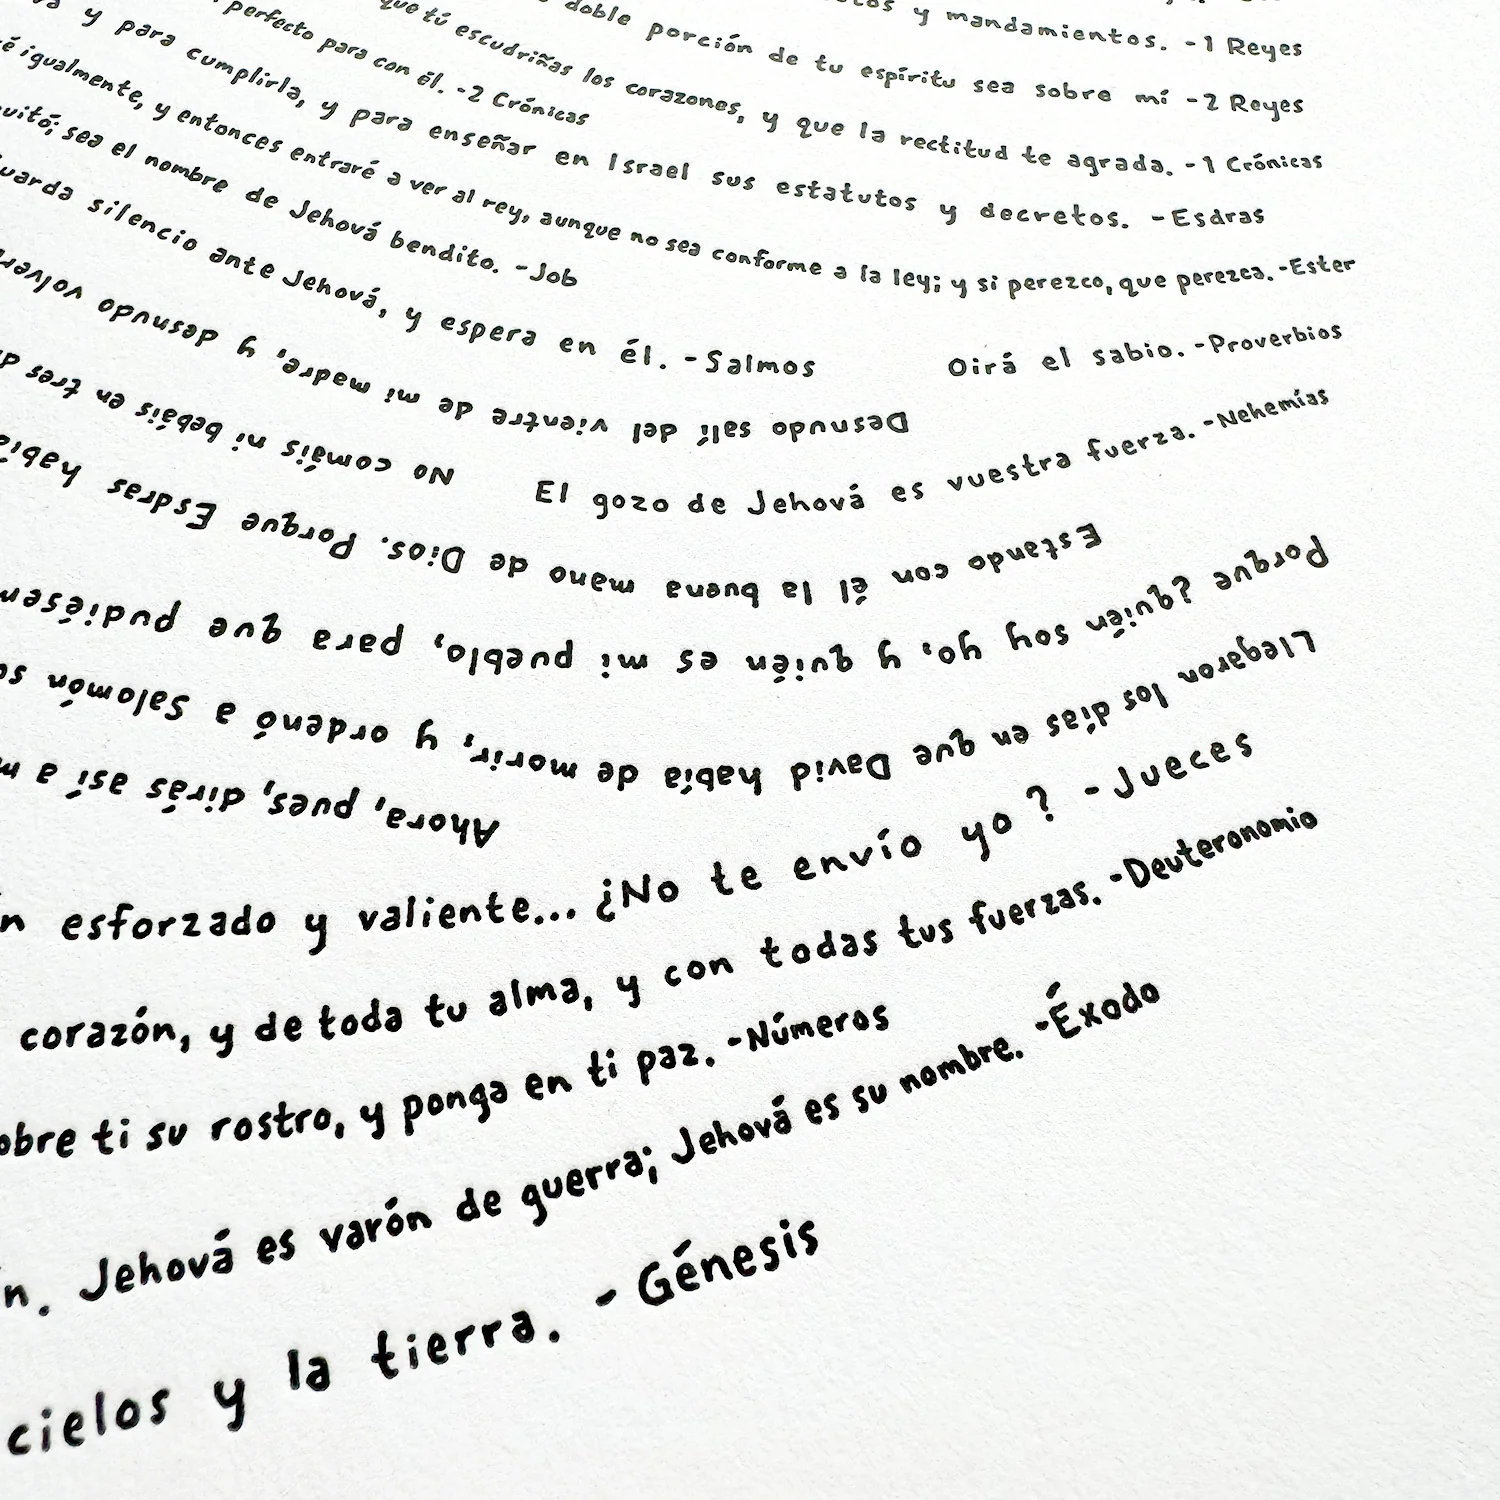 y mandamientos. -1 Reyes
doble porción de tu espíritu sea sobre mí -2 Reyes
que tú escudriñas los corazones, y que la rectitud te agrada. -1 Crónicas
perfecto para con él. -2 Crónicas
y para cumplirla, y para enseñar en Israel sus estatutos y decretos. -Esdras
igualmente, y entonces entraré a ver al rey, aunque no sea conforme a la ley; y si perezco, que perezca. -Ester
sea el nombre de Jehová bendito. -Job
silencio ante Jehová, y espera en él. -Salmos
Oirá el sabio. -Proverbios
Desnudo salí del vientre de mi madre, y desnudo
El gozo de Jehová es vuestra fuerza. -Nehemías
No comáis ni bebáis en tres
Estando con él la buena mano de Dios. Porque Esdras
Porque ?quién soy yo, y quién es mi pueblo, para que
Llegaron los días en que David había de morir, y ordenó a Salomón
Ahora, pues, dirás así a
esforzado y valiente... ¿No te envío yo? - Jueces
corazón, y de toda tu alma, y con todas tus fuerzas. -Deuteronomio
ti su rostro, y ponga en ti paz. -Números
Jehová es varón de guerra; Jehová es su nombre. -Éxodo
cielos y la tierra. - Génesis